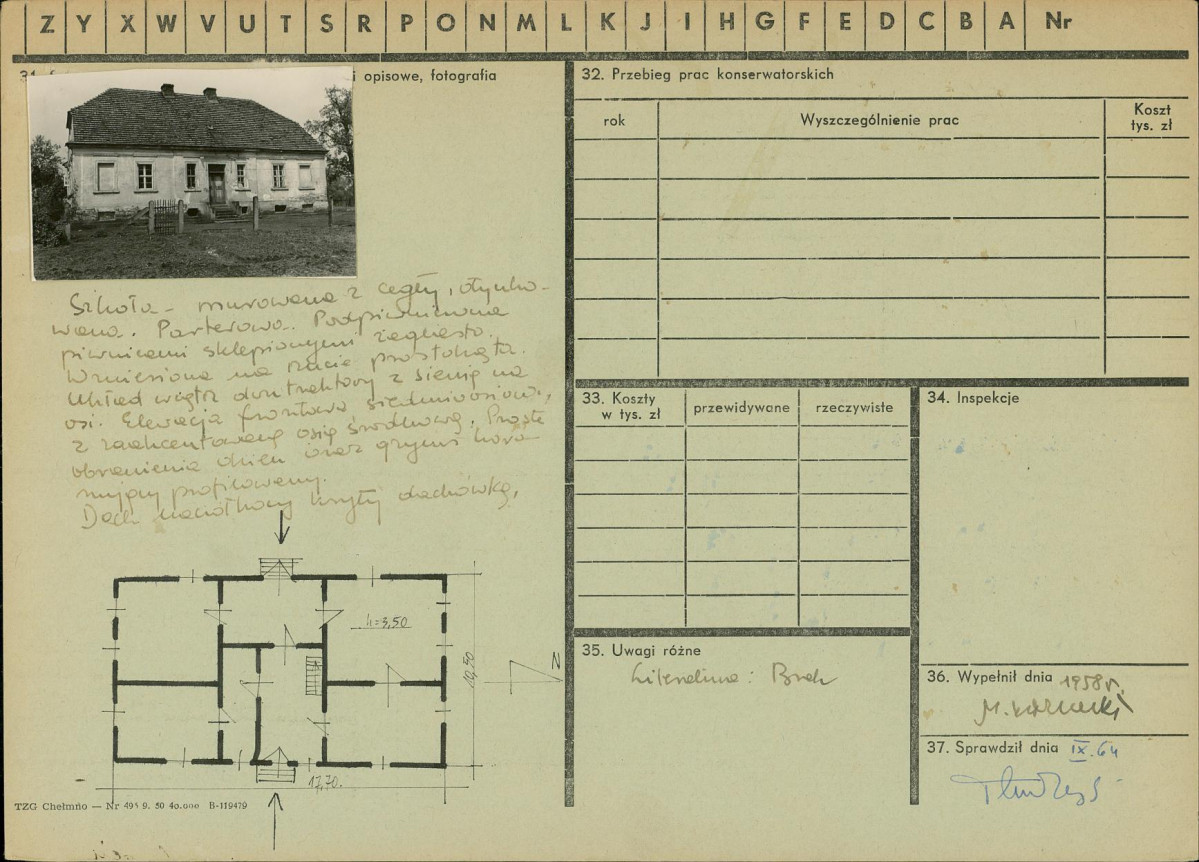 Z Y X W V U T S R P O N M L K J I H G F E D C B A Nr
31. i opisowe, fotografia
Szkoła - murowana z cegły, otynko-
wana. Parterowa. Podpiwniczona
piwnicami sklepionymi żaglasto.
Wzniesiona na rzucie prostokąta.
Układ wnętrz dwutraktowy z sienią na
osi. Elewacja frontowa siedmioosiowa,
z zaakcentowaną osią środkową. Proste
obramienia okien oraz gzyms koro-
nujący profilowany.
Dach naczółkowy kryty dachówką.
h=3,50
10,50
N
17,70.
TZG Chełmno — Nr 495 9. 50 40.000 B-119479
32. Przebieg prac konserwatorskich
rok
Wyszczególnienie prac
Koszt
tys. zł
33. Koszty
w tys. zł
przewidywane
rzeczywiste
34. Inspekcje
35. Uwagi różne
Literatura: Brak
36. Wypełnił dnia 1958 r.
37. Sprawdził dnia IX.64